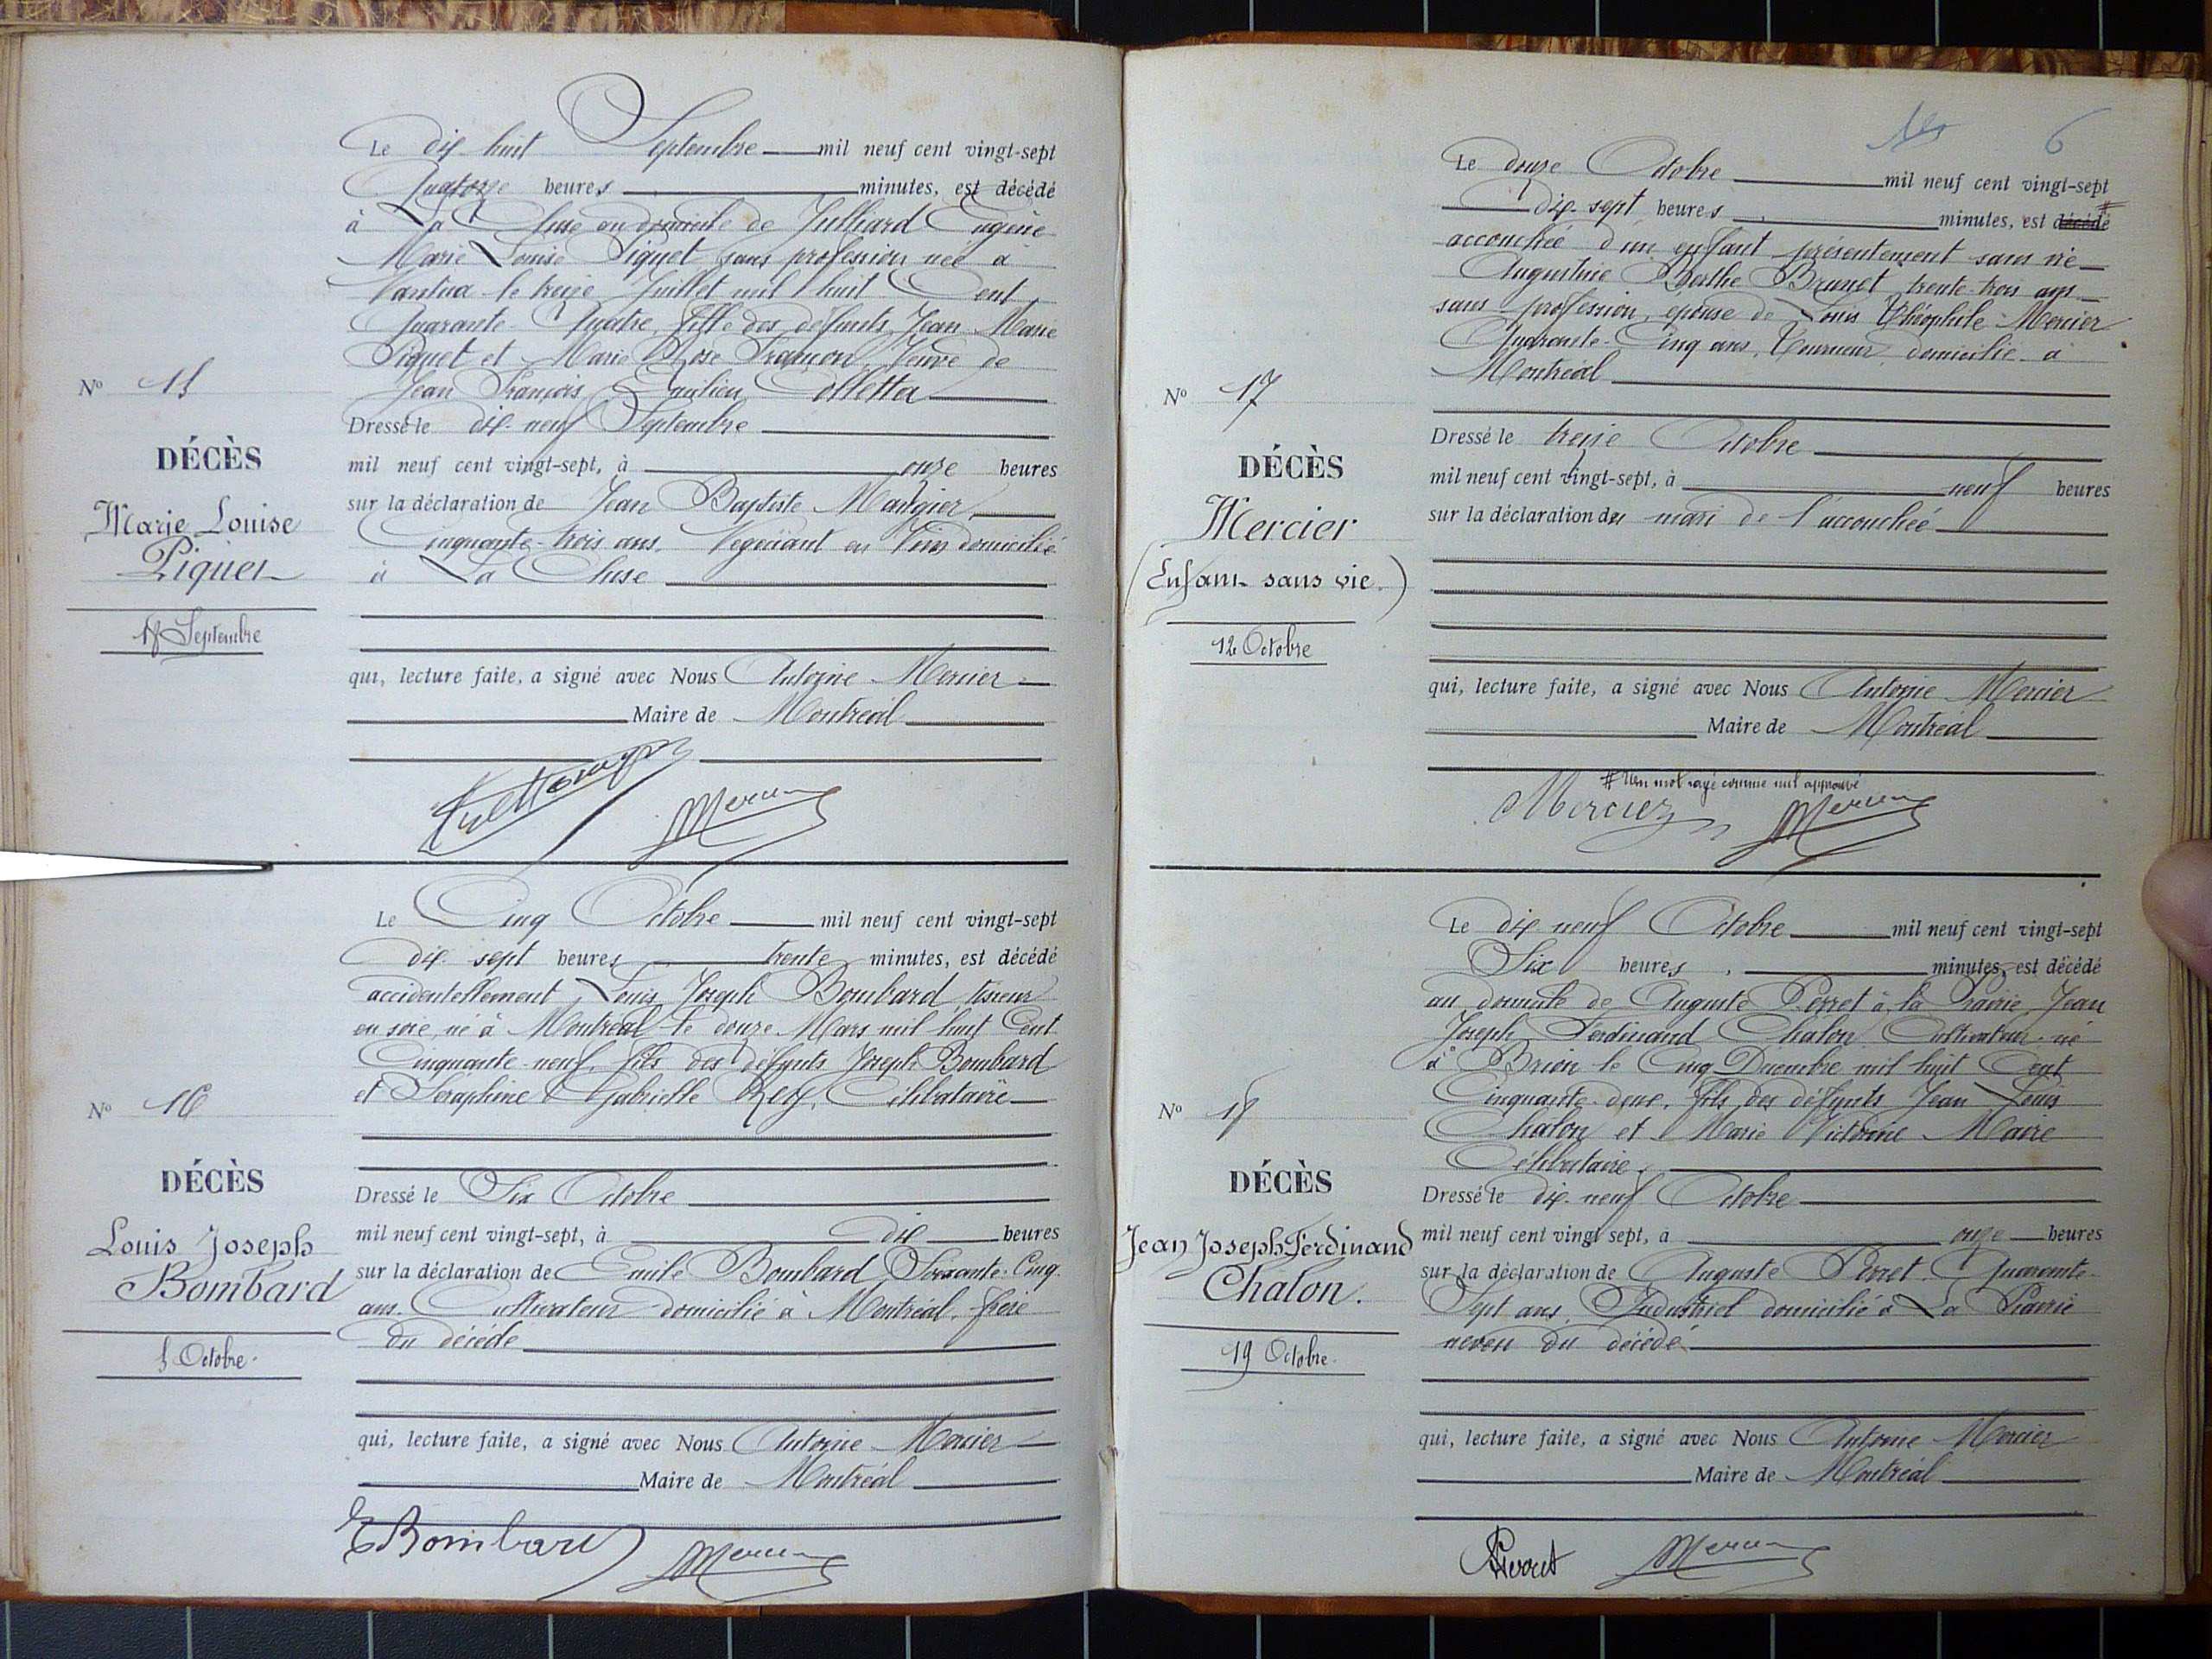 Le dix huit Septembre mil neuf cent vingt-sept
Quatorze heures minutes, est décédé
à La Cluse au domicile de Julliard Eugène
Marie Louise Piquet sans profession née à
Nantua le treize Juillet mil huit Cent
Quarante-Quatre, fille des défunts Jean Marie
Piquet et Marie Rose Françon, Veuve de
Jean François Emilien Colletta
Nº 15
Dressé le dix-neuf Septembre
DÉCÈS
mil neuf cent vingt-sept, à onze heures
Marie Louise
Piquet
18 Septembre
sur la déclaration de Jean Baptiste
Cinquante-trois ans, Négociant en Vins domicilié
à La Cluse
qui, lecture faite, a signé avec Nous Antoine Mercier
Maire de Montréal
Mercier
Le Cinq Octobre mil neuf cent vingt-sept
dix sept heures trente minutes, est décédé
accidentellement, Louis Joseph Bombard tisseur
en soie, né à Montréal le douze Mars mil huit Cent
Cinquante-neuf, fils des défunts Joseph Bombard
et Séraphine Gabrielle Rey, Célibataire
Nº 16
DÉCÈS
Louis Joseph
Bombard
5 Octobre.
Dressé le Six Octobre
mil neuf cent vingt-sept, à dix heures
sur la déclaration de Emile Bombard Soixante-Cinq
ans. Cultivateur domicilié à Montréal, frère
du décédé
qui, lecture faite, a signé avec Nous Antoine Mercier
Maire de Montréal
E Bombard Mercier
6
Le douze Octobre mil neuf cent vingt-sept
dix-sept heures minutes, est décédé #
accouchée d'un enfant présentement sans vie
Augustine Berthe Brunet trente-trois ans
sans profession, épouse de Louis Théophile Mercier
Quarante-Cinq ans, Tourneur, domicilié à
Montréal
Nº 17
DÉCÈS
Mercier
(Enfant sans vie.)
12 Octobre
Dressé le treize Octobre
mil neuf cent vingt-sept, à neuf heures
sur la déclaration du mari de l'accouchée
qui, lecture faite, a signé avec Nous Antoine Mercier
Maire de Montréal
# Un mot rayé comme nul approuvé
Mercier Mercier
Le dix neuf Octobre mil neuf cent vingt-sept
Six heures minutes, est décédé
au domicile de Auguste Perret à la Prairie, Jean
Joseph Ferdinand Chalon Cultivateur né
à Brion le Cinq Décembre mil huit Cent
Cinquante-deux, fils des défunts Jean Louis
Chalon et Marie Victorine Maire
Célibataire
Nº 18
DÉCÈS
Jean Joseph Ferdinand
Chalon.
19 Octobre.
Dressé le dix-neuf Octobre
mil neuf cent vingt sept, à onze heures
sur la déclaration de Auguste Perret Quarante-
Sept ans, Industriel domicilié à La Prairie
neveu du décédé
qui, lecture faite, a signé avec Nous Antoine Mercier
Maire de Montréal
Mercier